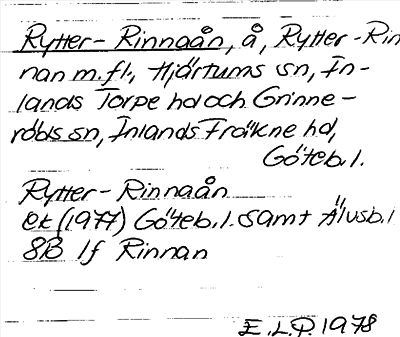 Rytter-Rinnaån, å, Rytter-Rin
nan m.fl., Hjärtums sn, In-
lands Torpe hd och Grinne-
röds sn, Inlands Fräkne hd,
Göteb.l.
Rytter-Rinnaån
Ek (1977) Göteb.l. samt Älvsb.l
8B If Rinnan
E.L.P. 1978